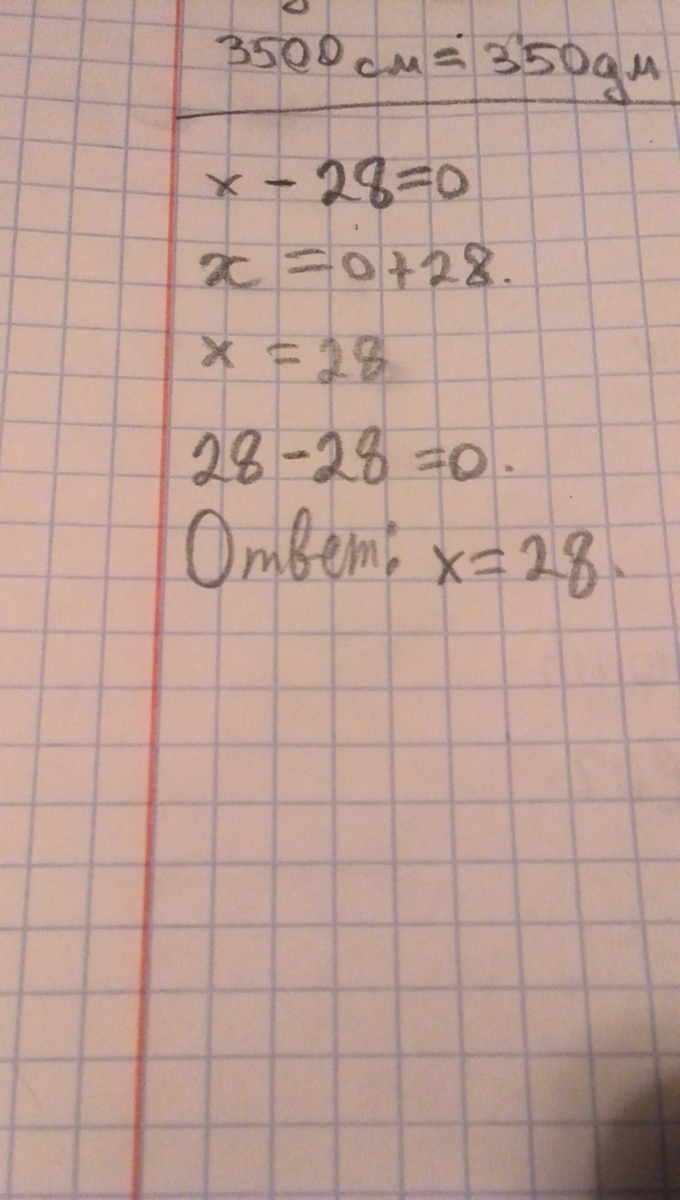 3500 см = 350 дм
x - 28=0
x =0+28.
x = 28
28-28 =0.
Ответ: x=28.